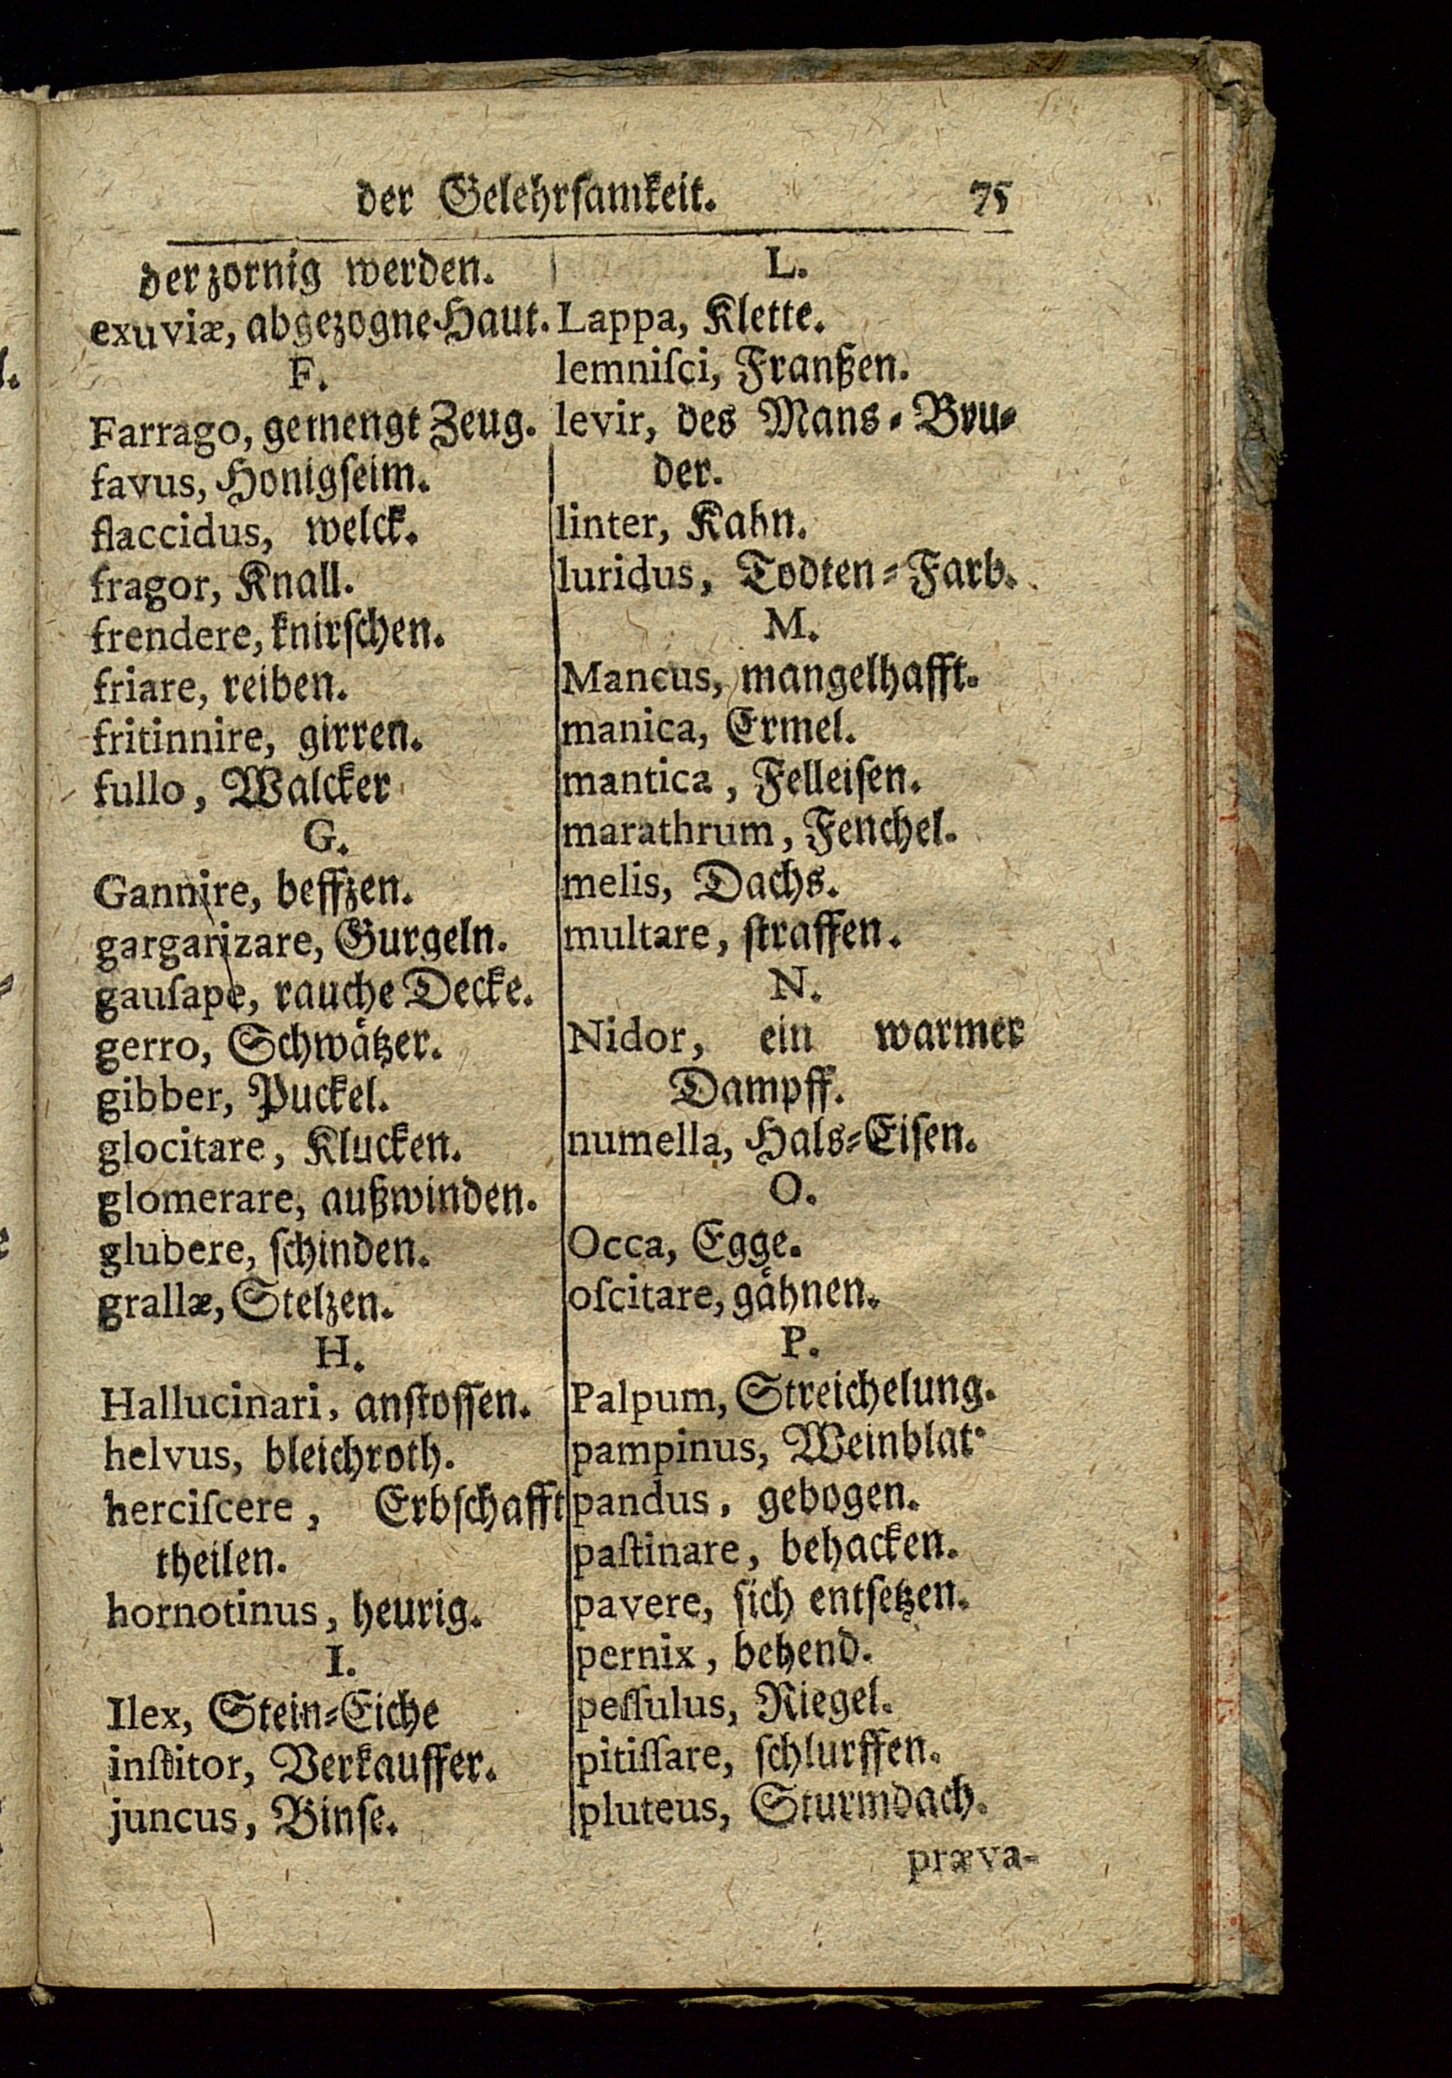 der Gelehrſamkeit. 75
der zornig werden.
exuviæ, abgezogne Haut.
F.
Farrago, gemengt Zeug.
favus, Honigſeim.
flaccidus, welck.
fragor, Knall.
frendere, knirſchen.
friare, reiben.
fritinnire, girren.
fullo, Walcker
G.
Gannire, beffzen.
gargarizare, Gurgeln.
gauſape, rauche Decke.
gerro, Schwätzer.
gibber, Puckel.
glocitare, Klucken.
glomerare, außwinden.
glubere, ſchinden.
grallæ, Stelzen.
H.
Hallucinari, anſtoſſen.
helvus, bleichroth.
herciſcere, Erbſchafft
theilen.
hornotinus, heurig.
I.
Ilex, Stein-Eiche
inſtitor, Verkauffer.
juncus, Binſe.
L.
Lappa, Klette.
lemniſci, Franßen.
levir, des Mans-Bru-
der.
linter, Kahn.
luridus, Todten-Farb.
M.
Mancus, mangelhafft.
manica, Ermel.
mantica, Felleiſen.
marathrum, Fenchel.
melis, Dachs.
multare, ſtraffen.
N.
Nidor, ein warmer
Dampff.
numella, Hals-Eiſen.
O.
Occa, Egge.
oſcitare, gähnen.
P.
Palpum, Streichelung.
pampinus, Weinblat.
pandus, gebogen.
paſtinare, behacken.
pavere, ſich entſetzen.
pernix, behend.
peſſulus, Riegel.
pitiſſare, ſchlurffen.
pluteus, Sturmdach.
præva-